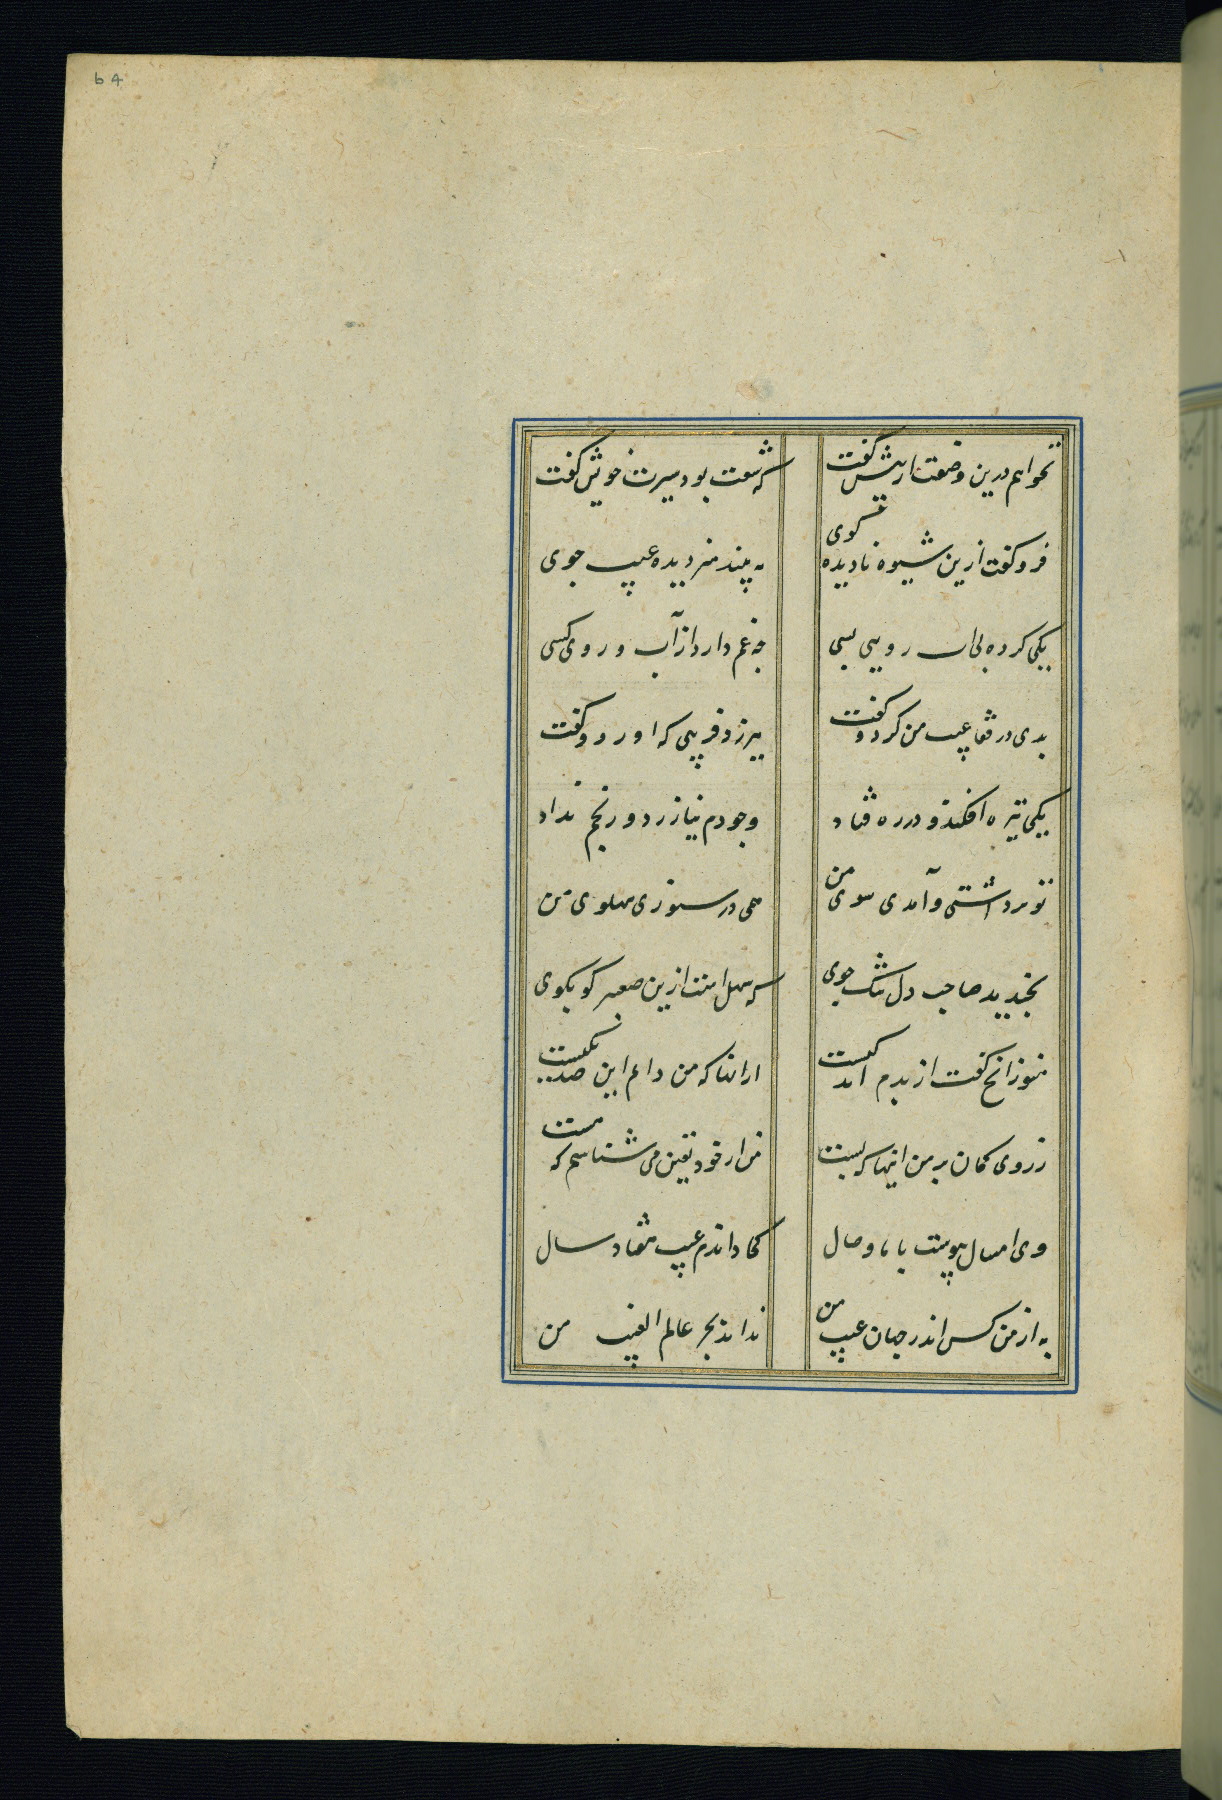 64
نخواهم درین وصف ازین بیش گفت که شنعت بود سیرت خویش گفت
فرو گفت ازین شیوه نادیده گوی نه بیند هنر دیده عیب جوی
یکی کرده بی آب رویی بسی چه غم دارد از آب روی کسی
بدی در قفا عیب من کرد و گفت بتر زو قرینی که آورد و گفت
یکی تیره افکند و در ره فتاد وجودم نیازرد و رنجم نداد
تو برداشتی و آمدی سوی من همی در سپوزی پهلوی من
بخندید صاحب دل نیک جوی که سهل است ازین صعبتر گو بگوی
هنوز آنچ گفت از بدم اندکیست از آنها که من دانم این صد یکیست
ز روی گمان بر من اینها که بست من از خود یقین می شناسم که هست
وی امسال پیوست با ما وصال کجا داندم عیب هفتاد سال
به از من کس اندر جهان عیب من نداند بجز عالم الغیب من